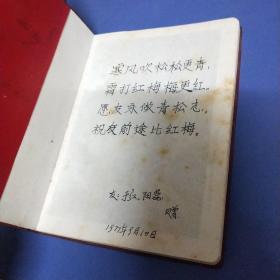 寒风吹松松更青，
霜打红梅梅更红。
愿友永做青松志，
祝友前途比红梅。
友：
阳磊
赠
1972年9月10日